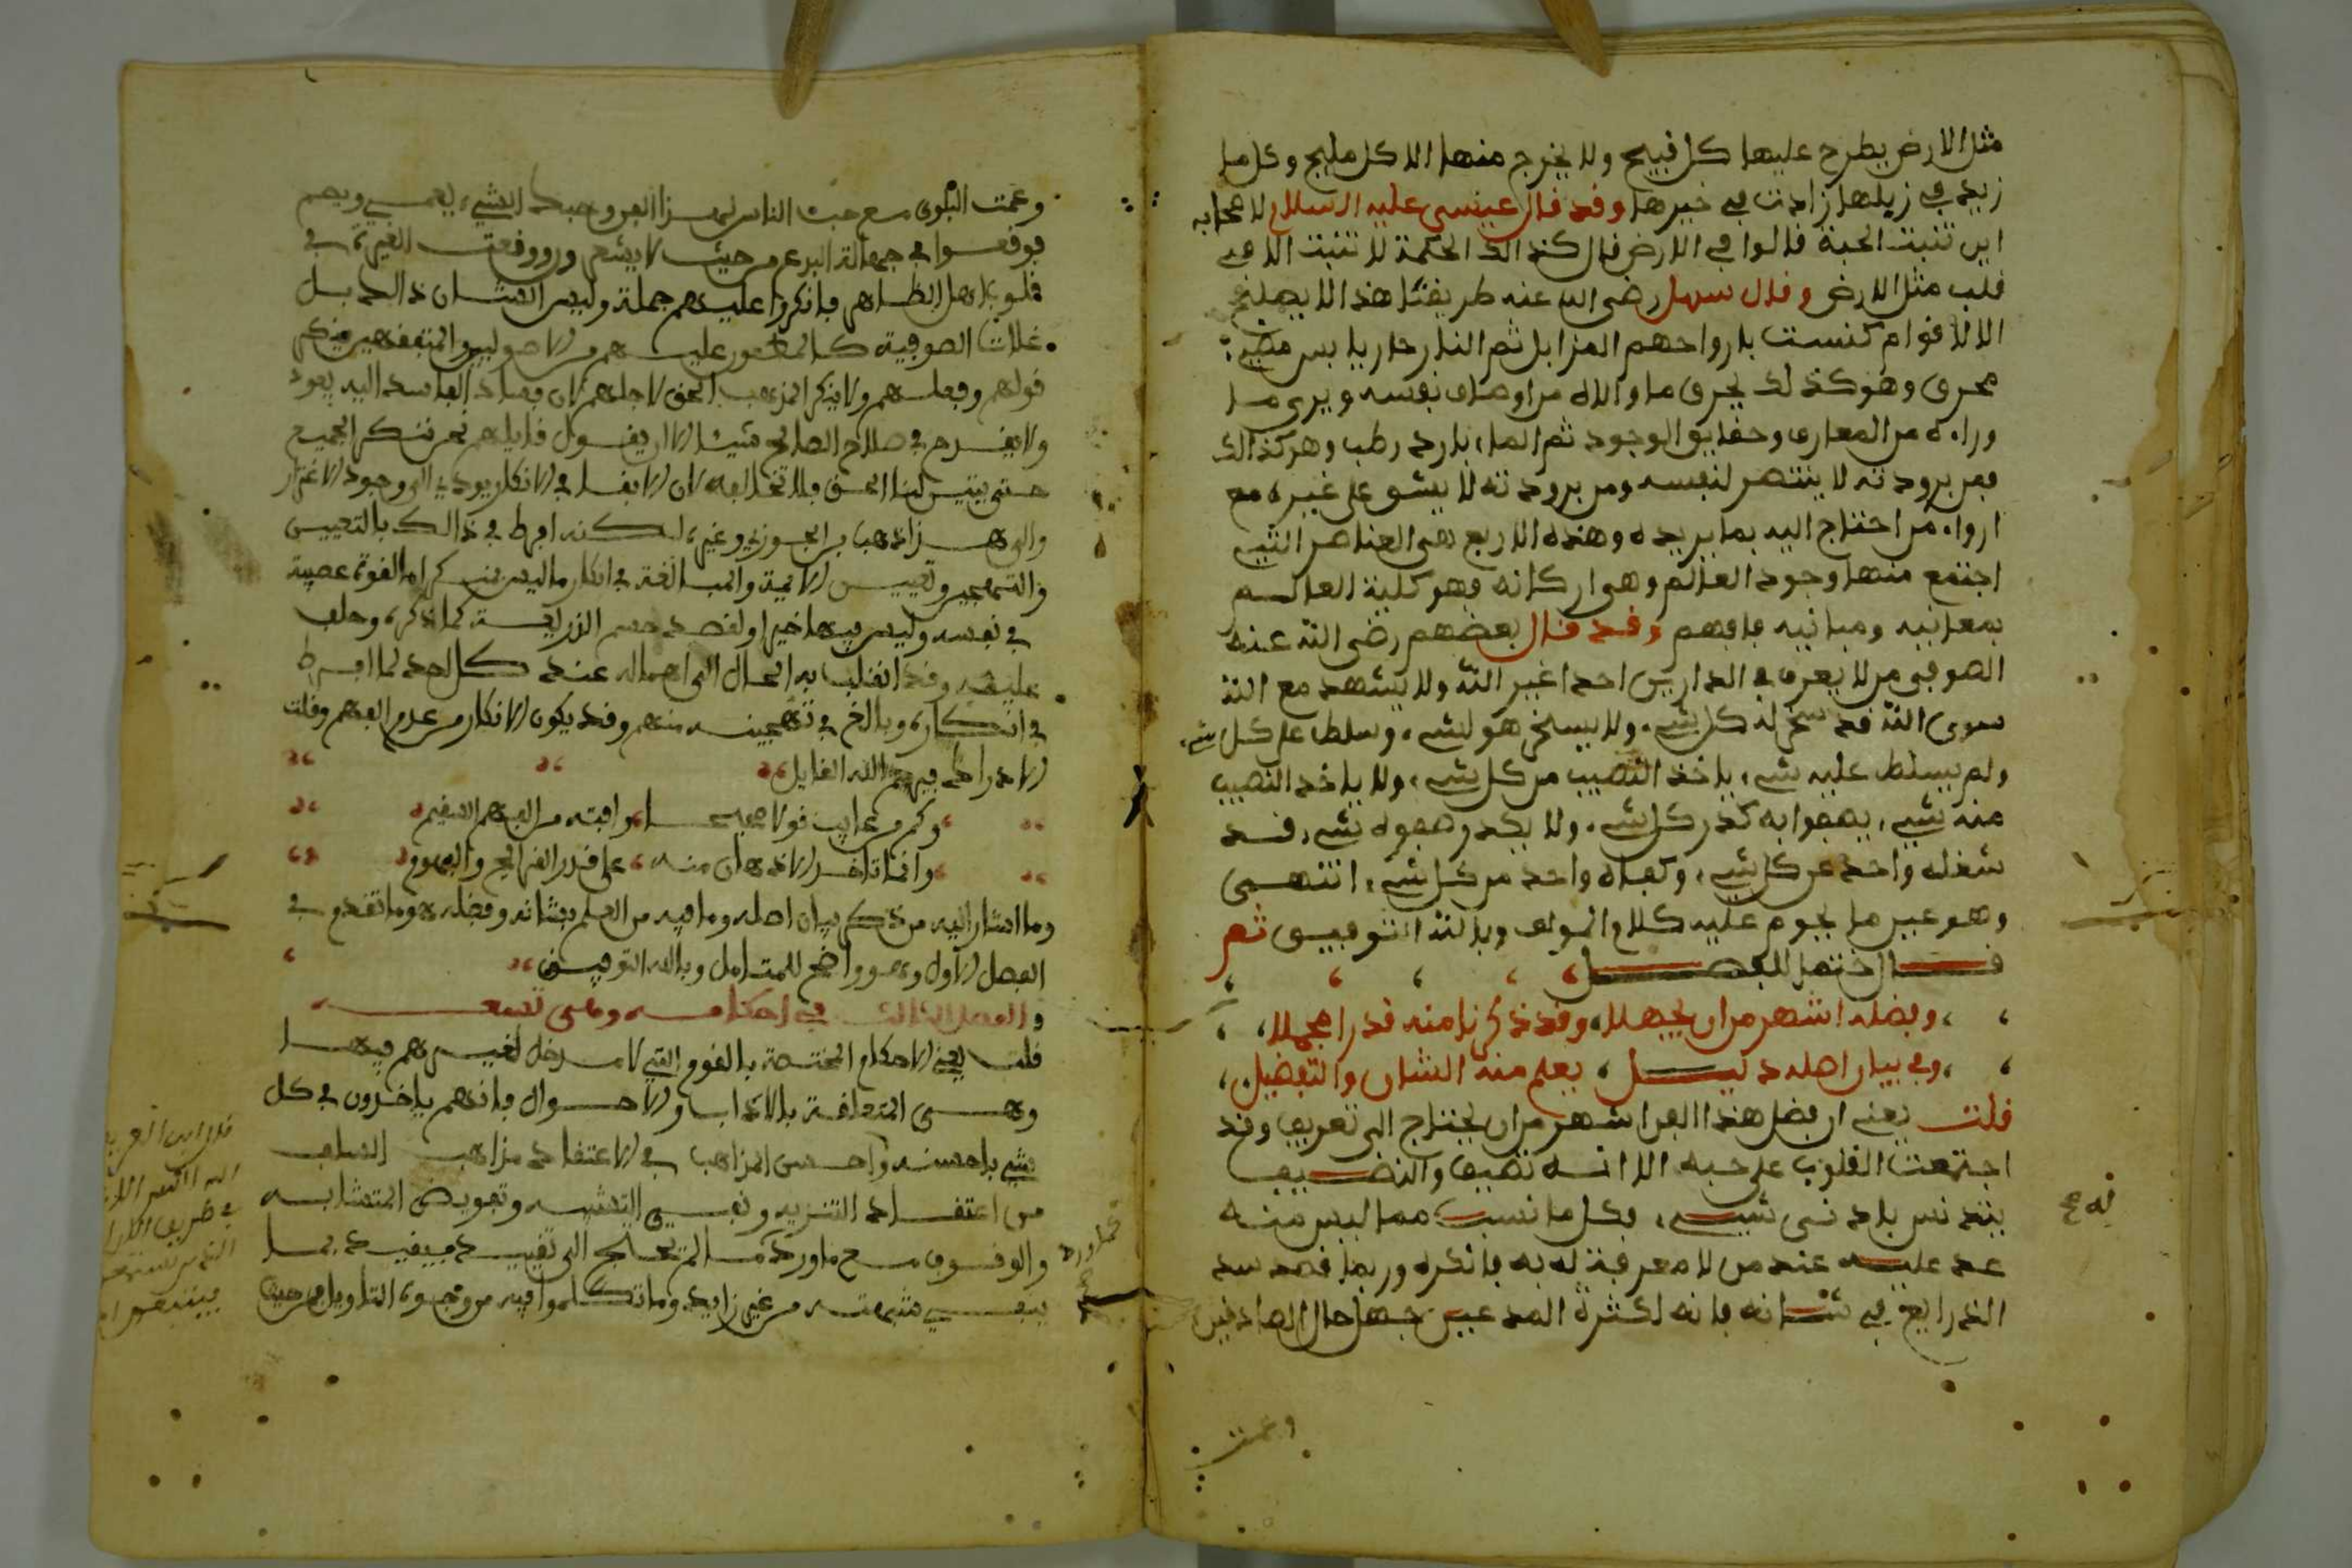 مثل الارض يطرح عليها كل قبيح ولا يخرج منها الا كل مليح وكل ما
زيد في زبلها زادت في خيرها وقد قال عيسى عليه السلام لاصحابه
اين تنبت الحبة قالوا في الارض قال كذالك الحكمة لا تنبت الا في
قلب مثل الارض وقال سهل رضي الله عنه طريقتنا هذا لا يصلح
الا لاقوام كنست بارواحهم المزابل ثم النار حار يابس مضيء
محرق وهو كذلك يحرق ما والاه من اوصاف نفسه ويرى ما
وراءه من المعارف وحقايق الوجود ثم الماء بارد رطب وهو كذالك
فمن برودته لا ينتصر لنفسه ومن برودته لا يشو على غيره مع
ارواء من احتاج اليه بما يريده وهذه الاربع هي العناصر التي
اجتمع منها وجود العالم وهي اركانه فهو كلية العالم
بمعانيه ومبانيه فافهم وقد قال بعضهم رضي الله عنه
الصوفي من لا يعرف في الدارين احدا غير الله ولا يشهد مع الله
سوى الله قد سخر له كل شيء ولا يسخر هو لشيء وسلط على كل شيء
ولم يسلط عليه شيء ياخذ النصيب من كل شيء ولا ياخذ النصيب
منه شيء يصفوا به كدر كل شيء ولا يكدر صفوه شيء قد
شغله واحد عن كل شيء وكفاه واحد من كل شيء انتهى
وهو عين ما يحوم عليه كلام المولف وبالله التوفيق ثم
قال ختما للفصل
وفضله اشهر من ان يجهلا وقد ذكرنا منه قدرا مجملا
وفي بيان اصله دليل يعلم منه الشان والتفضيل
قلت يعني ان فضل هذا الفن اشهر من ان يحتاج الى تعريف وقد
اجتمعت القلوب على حبه الا انه نضيف والنضيف
يتدنس بادنى شيء فكل ما نسب مما ليس منه
عد عليه عند من لا معرفة له به فانكره وربما قصد سد
الذرايع في شانه فانه لكثرة المدعين جهل حال الصادقين
وعمت
وعمت البلوى مع حب الناس لهذا الفن وحبك الشيء يعمي ويصم
فوقعوا في جهالة البدع من حيث لا يشعرون ووقعت الغيرة في
قلوب اهل الظاهر فانكروا عليهم جملة وليس الشان ذالك بل
غلات الصوفية كالمطعون عليهم من الاصوليين والمتفقهين فينكر
قولهم وفعلهم ولا ينكر المذهب الحق لاجلهم لان فساد الفاسد اليه يعود
ولا يقدح في صلاح الصالح شيئا الا ان يقول قايلهم نحن ننكر الجميع
حتى يتبين لنا الحق فلا نخالفه لان الابقا في الانكار يودي الى وجود الاغترار
والى هذا ذهب بن الجوزي وغيره لكنه افرط في ذالك بالتعيين
والتهجين وتعيين الايمة والمبالغة في انكار ما ليس بمنكر اما لقوة عصبية
في نفسه وليس فيها خير او لقصد حسم الذريعة كما ذكره وحلف
عليه وقد انقلب به الحال الى اهماله عند كل احد لما افرط
في انكاره وبالغ في تهجينه منهم وقد يكون الانكار من عدم الفهم وقلت
الادراك فيرحم الله القايل
وكم من عايب قولا صحيحا وافته من الفهم السقيم
وانما تاخذ الاذهان منه على قدر القرايح والفهوم
وما اشار اليه من ذكر بيان اصله وما فيه من العلم بشانه وفضله هو ما تقدم في
الفصل الاول وهو واضح للمتامل وبالله التوفيق
والفصل الثالث في احكامه
قلت يعني الاحكام المختصة بالقوم التي لا مدخل لغيرهم فيها
وهي المتعلقة بالاداب والاحوال فانهم ياخذون في كل
شيء باحسنه واحسن المذاهب في الاعتقاد مذاهب السلف
من اعتقاد التنزيه ونفي التشبيه وتفويض المتشابه
والوقوف مع ما ورد ما لم يحتج الى تقييد فيفيد بما
ينفي شبهته من غير زايد وما تكلموا فيه من وجوه التاويل فمن حيث